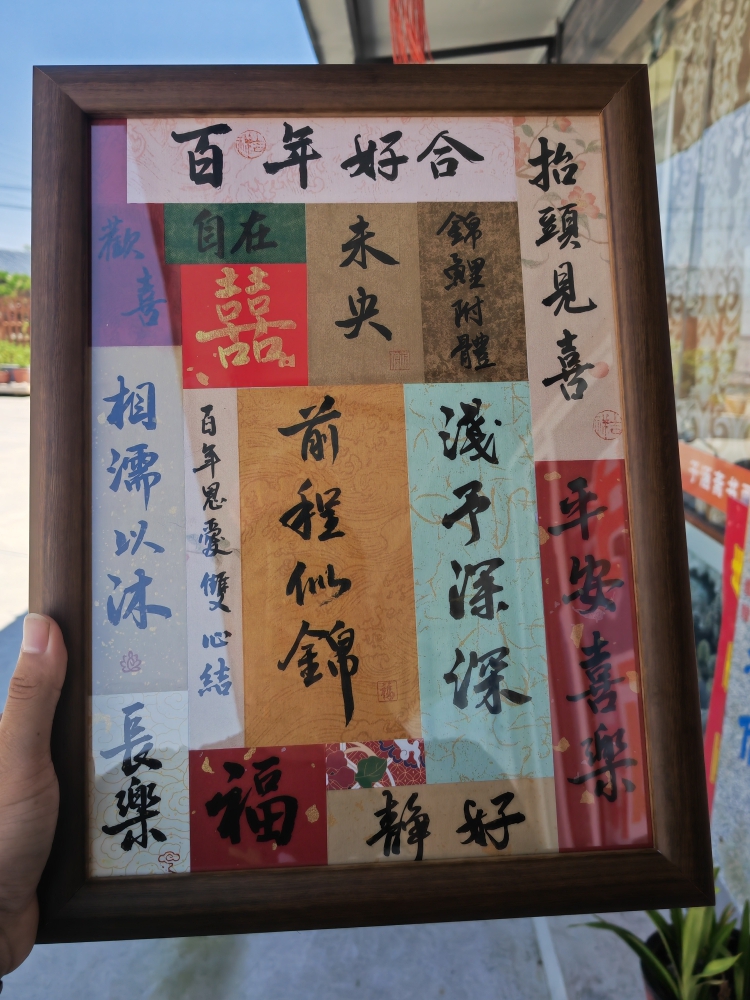 百年好合
抬頭見喜
歡喜
自在
未央
錦鯉附體
囍
相濡以沐
百年恩愛雙心結
前程似錦
淺予深深
平安喜樂
長樂
福
靜好